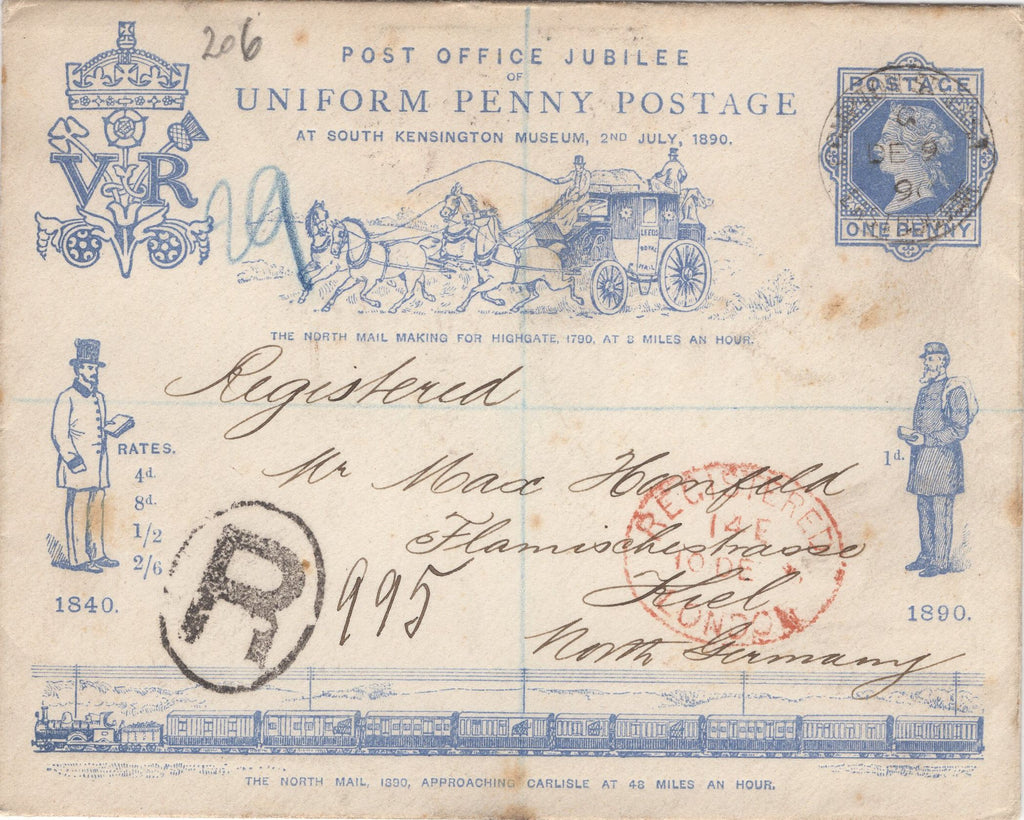 206
POST OFFICE JUBILEE
OF
UNIFORM PENNY POSTAGE
AT SOUTH KENSINGTON MUSEUM, 2ND JULY, 1890.
VR
29
LEEDS
ROYAL
MAIL
POSTAGE
DE 9
90
ONE PENNY
THE NORTH MAIL MAKING FOR HIGHGATE, 1790, AT 8 MILES AN HOUR.
Registered
RATES.
4d.
8d.
1/2
2/6
1840.
1d.
1890.
Mr Max
Flamischestrasse
Kiel
North Germany
R
995
REGISTERED
14 E
10 DE
LONDON
THE NORTH MAIL, 1890, APPROACHING CARLISLE AT 48 MILES AN HOUR.